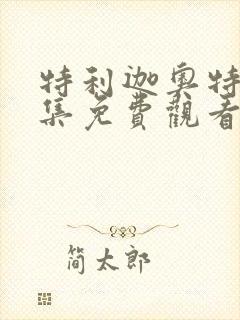 特利迦奥特
集免費觀看
简太郎